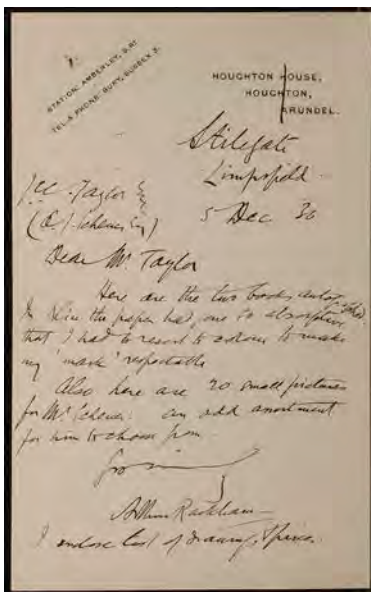 STATION: AMBERLEY, S.RY
TELEPHONE: BURY, SUSSEX 3.
HOUGHTON HOUSE,
HOUGHTON,
ARUNDEL.
Stilegate
Limpsfield
Taylor
5 Dec 36
Dear Mr. Taylor
Here are the two books
the paper had, one so absorptive
that I had to resort to colour to make
my 'mark' respectable
Also here are 20 small pictures
for Mr. Scheuer. an odd assortment
for him to choose from.
Arthur Rackham
I enclose list of drawings & prices.